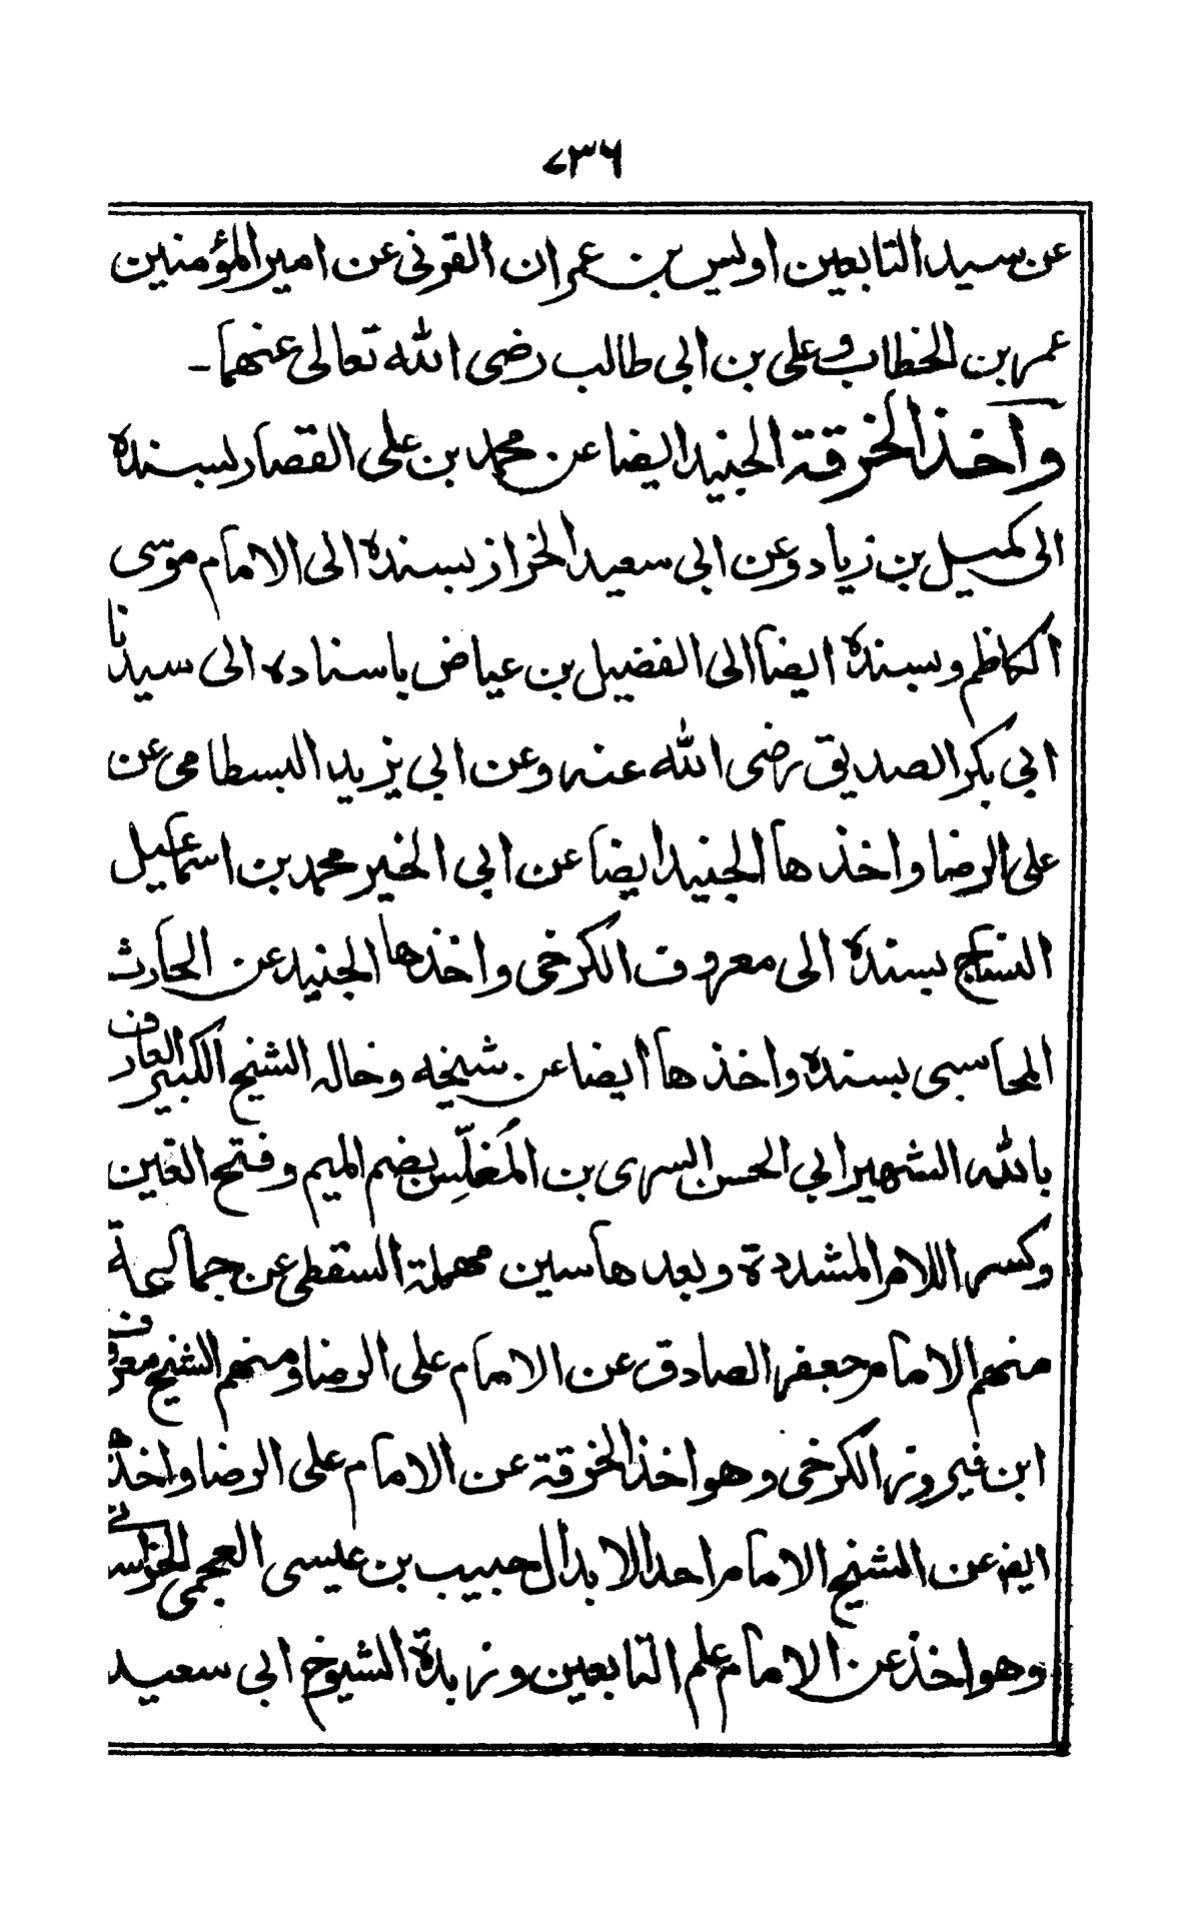 ٧٣٦
عن سيد التابعين اويس بن عمران القرنى عن امير المؤمنين
عمر بن الخطاب وعلى بن ابى طالب رضى الله تعالى عنهما-
واخذ الخرقة الجنيد ايضا عن محمد بن على القصار بسنده
الى كميل بن زياد وعن ابى سعيد الخراز بسنده الى الامام موسى
الكاظم وبسنده ايضا الى الفضيل بن عياض باسناده الى سيدنا
ابى بكر الصديق رضى الله عنه وعن ابى يزيد البسطامى عن
على الرضا واخذها الجنيد ايضا عن ابى الخير محمد بن اسماعيل
النساج بسنده الى معروف الكرخى واخذها الجنيد عن الحارث
المحاسبى بسنده واخذها ايضا عن شيخه وخاله الشيخ الكبير العارف
بالله الشهير ابى الحسن السرى بن المُغلِّس بضم الميم وفتح الغين
وكسر اللام المشددة وبعدها سين مهملة السقطى عن جماعة
منهم الامام جعفر الصادق عن الامام على الرضا ومنهم الشيخ معروف
ابن فيروز الكرخى وهو اخذ الخرقة عن الامام على الرضا واخذها
ايضا عن الشيخ الامام احد الابدال حبيب بن عيسى العجمى
وهو اخذ عن الامام علم التابعين وزبدة الشيوخ ابى سعيد